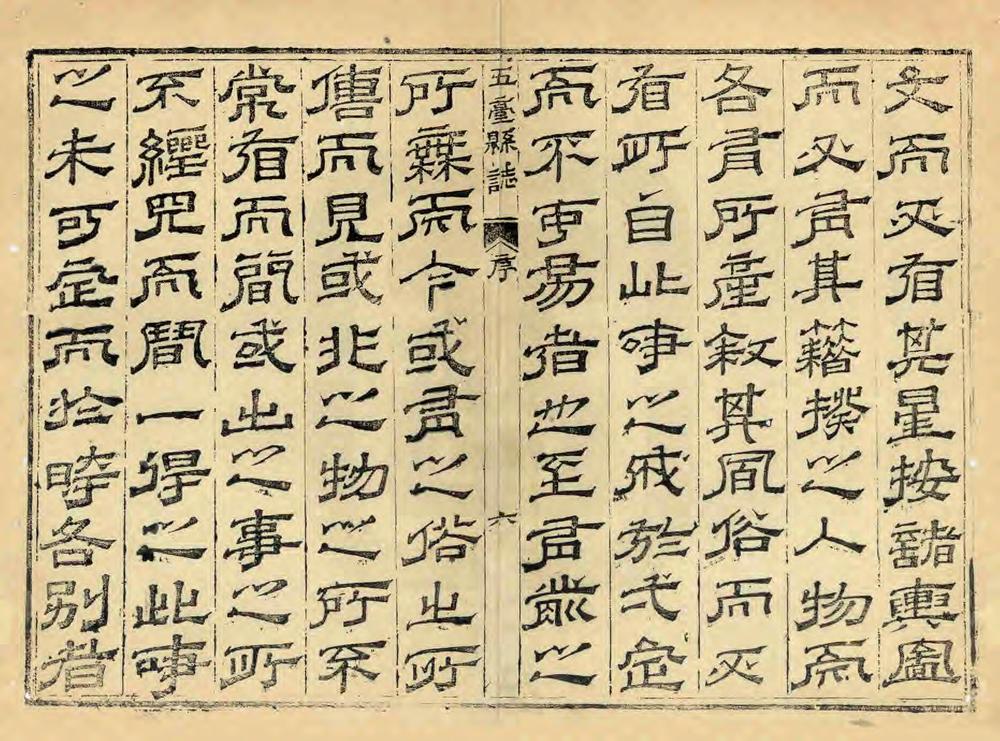 文而必有其星按諸輿圖
而必有其籍揆之人物而
各有所產敘其風俗而必
有所自此事之成於弌定
而不更易者也至有之
五臺縣誌 序 六
所無而今或有之俗之所
傳而見或非之物之所不
常有而間或出之事之所
不經見而間一得之此事
之未可定而於時各別者